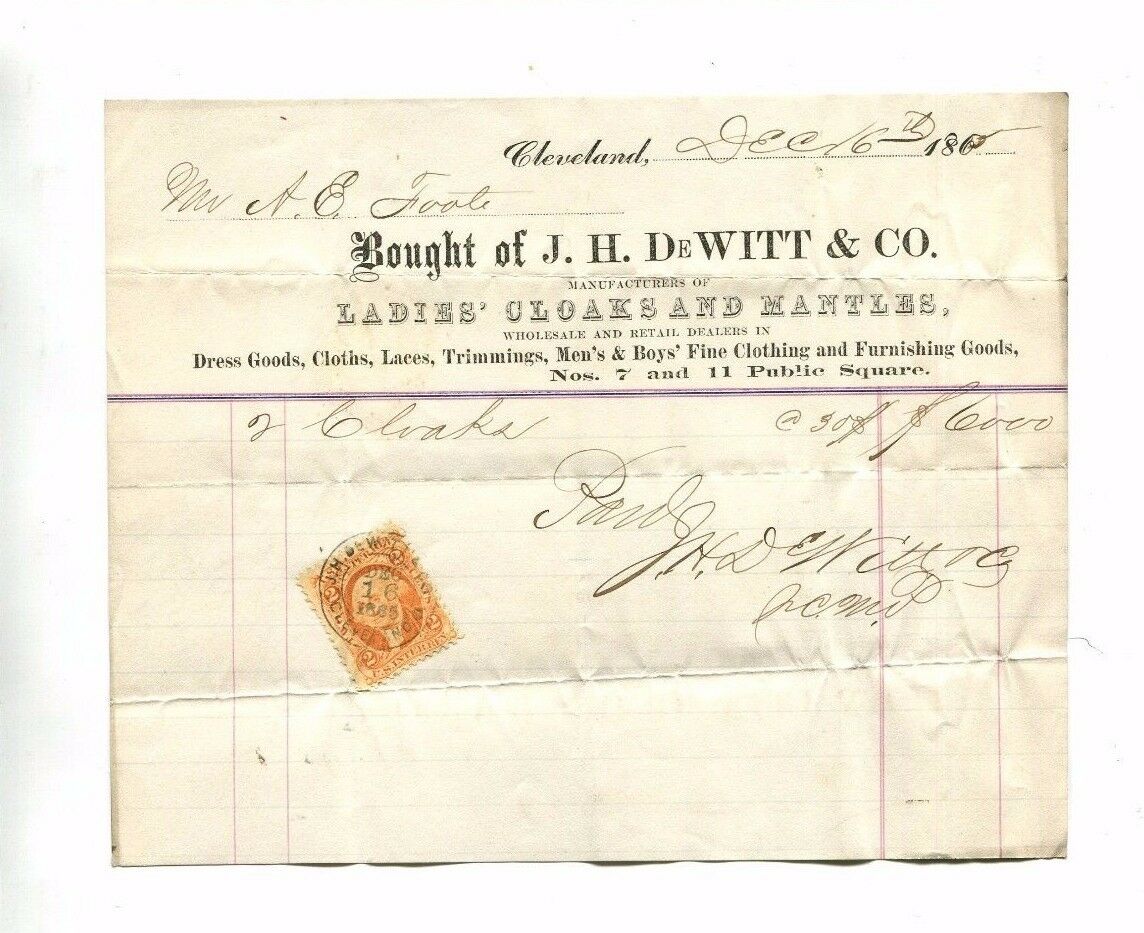 Cleveland, Dec 16th 1865
Mr A. E. Foote
Bought of J. H. DeWITT & CO.
MANUFACTURERS OF
LADIES' CLOAKS AND MANTLES,
WHOLESALE AND RETAIL DEALERS IN
Dress Goods, Cloths, Laces, Trimmings, Men's & Boys' Fine Clothing and Furnishing Goods,
Nos. 7 and 11 Public Square.
2 Cloaks @ 30$ $ 6000
Paid
J. H. DeWitt & Co
J.H. DEWITT &
DEC
16
1865
CLEVELAND
2 U.S. INTER. REV. 2